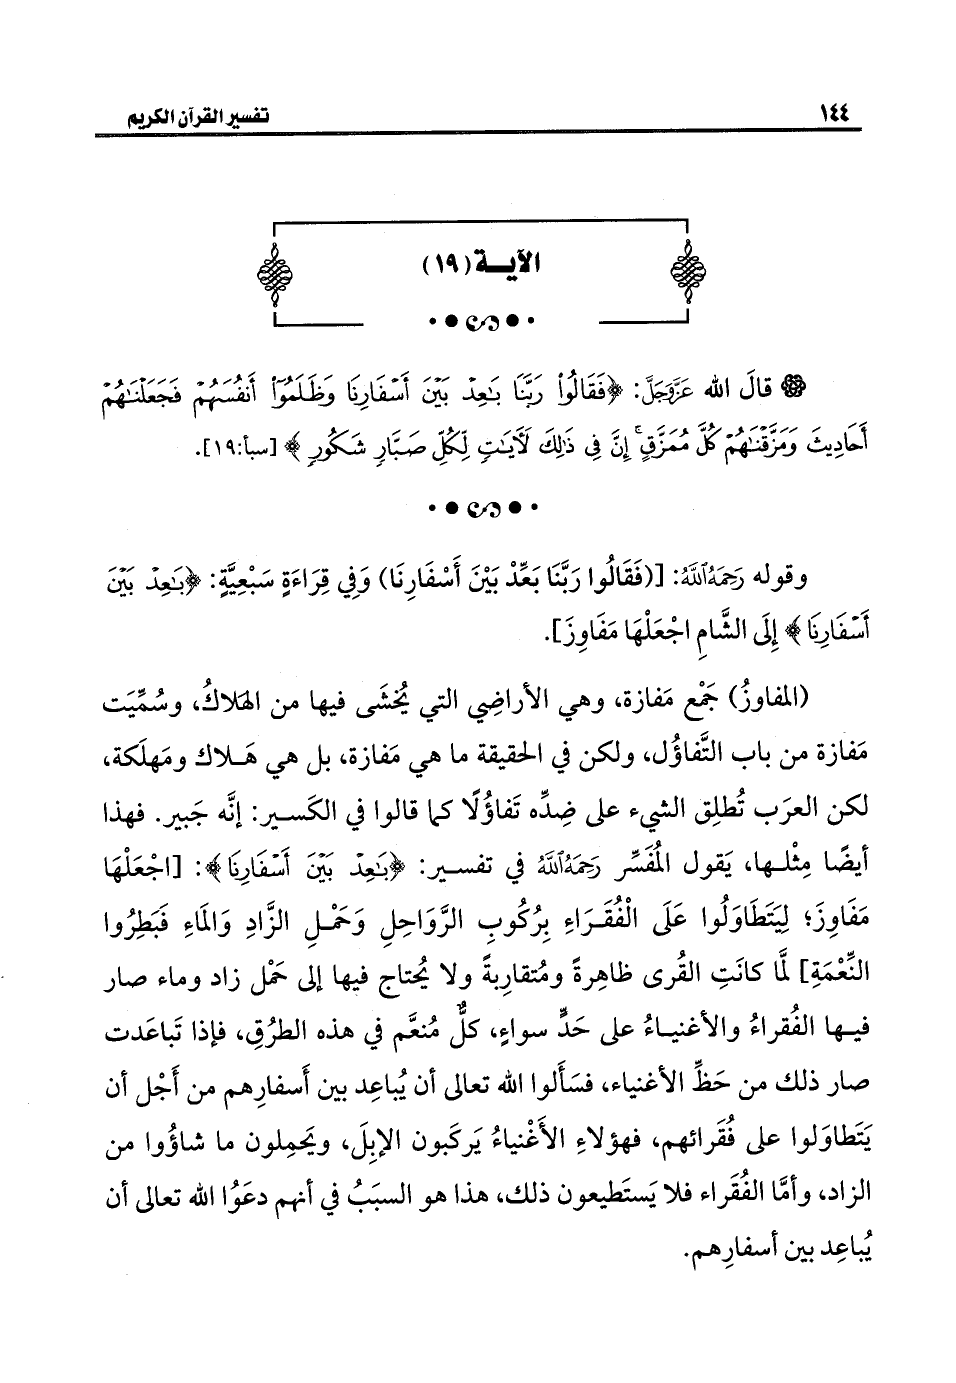 ١٤٤
تفسير القرآن الكريم
الآيـــة (١٩)
قالَ الله عَزَّوَجَلَّ: ﴿فَقَالُواْ رَبَّنَا بَٰعِدْ بَيْنَ أَسْفَارِنَا وَظَلَمُوٓاْ أَنفُسَهُمْ فَجَعَلْنَٰهُمْ
أَحَادِيثَ وَمَزَّقْنَٰهُمْ كُلَّ مُمَزَّقٍ ۚ إِنَّ فِى ذَٰلِكَ لَأَيَٰتٍ لِّكُلِّ صَبَّارٍ شَكُورٍ﴾ [سبأ:١٩].
وقوله رَحِمَهُ ٱللَّهُ: [(فَقَالُوا رَبَّنَا بَعِّدْ بَيْنَ أَسْفَارِنَا) وَفِي قِرَاءَةٍ سَبْعِيَّةٍ: ﴿بَٰعِدْ بَيْنَ
أَسْفَارِنَا﴾ إِلَى الشَّامِ اجْعَلْهَا مَفَاوِزَ].
(المفاوزُ) جَمْع مَفازة، وهي الأراضِي التي يُخْشَى فيها من الهَلاكُ، وسُمِّيَت
مَفازة من باب التَّفاؤُل، ولكن في الحقيقة ما هي مَفازة، بل هي هَـلاك ومَهلَكة،
لكن العرَب تُطلِق الشيء على ضِدِّه تَفاؤُلًا كما قالوا في الكَسير: إنَّه جَبير. فهذا
أيضًا مِثْلـها، يَقول المُفَسِّر رَحِمَهُ ٱللَّهُ في تفسـير: ﴿بَٰعِدْ بَيْنَ أَسْفَارِنَا﴾: [اجْعَلْهَا
مَفَاوِزَ؛ لِيَتَطَاوَلُوا عَلَى الْفُقَـرَاءِ بِرُكُوبِ الرَّوَاحِلِ وَحَمْـلِ الزَّادِ وَالمَاءِ فَبَطِرُوا
النِّعْمَةِ] لمَّا كانَتِ القُرى ظاهِرةً ومُتقارِبةً ولا يُحتاج فيها إلى حَمْل زاد وماء صار
فيـها الفُقراءُ والأغنيـاءُ على حَدٍّ سواءٍ، كلٌّ مُنعَّم في هذه الطرُقِ، فإذا تَباعَدت
صار ذلك من حَظِّ الأغنياء، فسَألوا الله تعالى أن يُباعِد بين أَسفارِهم من أَجْل أن
يَتَطاوَلوا على فُقَرائهم، فهؤلاءِ الأَغْنياءُ يَركَبون الإبِلَ، ويَحمِلون ما شاؤُوا من
الزاد، وأمَّا الفُقَراء فلا يَستَطيعون ذلك، هذا هو السبَبُ في أنهم دعَوُا الله تعالى أن
يُباعِد بين أسفارِهم.